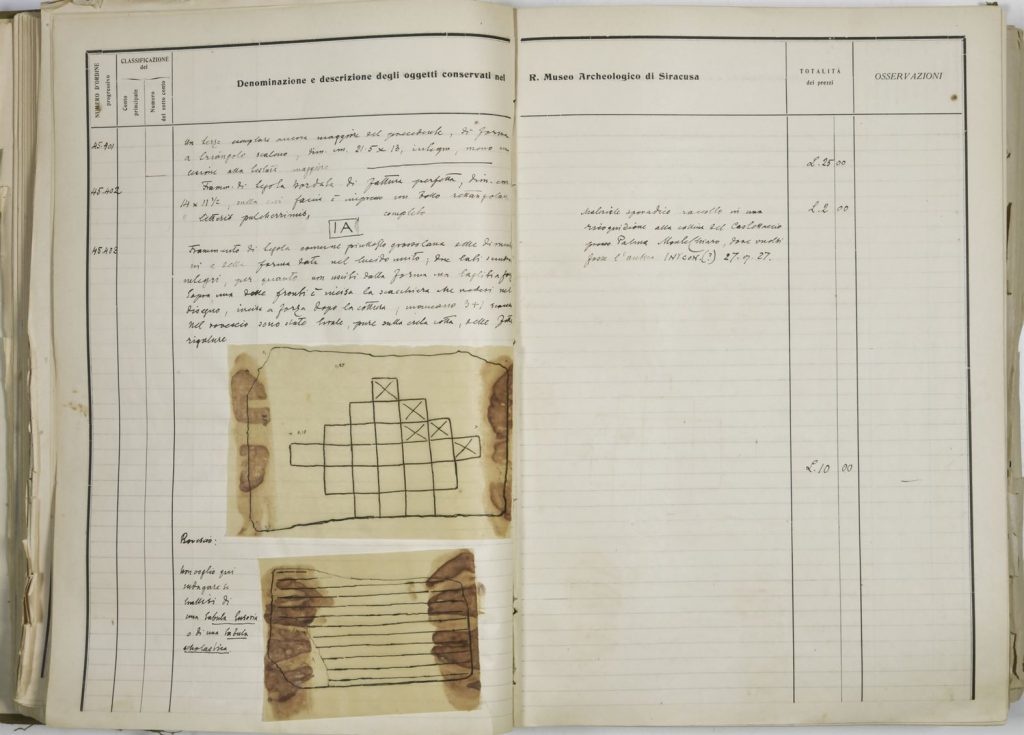 NUMERO D'ORDINE
progressivo
CLASSIFICAZIONE
del
Conto
principale
Numero
del sotto conto
Denominazione e descrizione degli oggetti conservati nel R. Museo Archeologico di Siracusa
TOTALITÀ
dei prezzi
OSSERVAZIONI
45.401
Un terzo esemplare ancora maggiore del precedente, di forma
a triangolo scaleno, dim. cm. 21.5 x 13, integro, meno
alla testata maggiore
L. 25 00
45.402
Framm. di tegola bordata di fattura perfetta, dim. cm.
14 x 11 ½, sulla cui facia è impresso un bollo rettangolare
litteris pulcherrimis, completo
IA
L. 2 00
Materiale sporadico raccolto in una
ricognizione alla collina del Castellaccio
presso Palma Montechiaro, dove
fosse l'antica (?) 27.
45.403
Frammento di tegola comune piuttosto grossolana delle dimensio
ni e della forma date nel lucido unito; due lati sono
integri, per quanto non usciti dalla forma ma
Sopra una delle fronti è incisa la scacchiera che vedesi nel
disegno, incisa a forza dopo la cottura, mancano 3+1
Nel rovescio sono state tirate, pure sulla creta cotta, delle
rigature
L. 10 00
Rovescio:
Non voglio qui
indagare se
trattisi di
una tabula lusoria
o di una tabula
scholastica